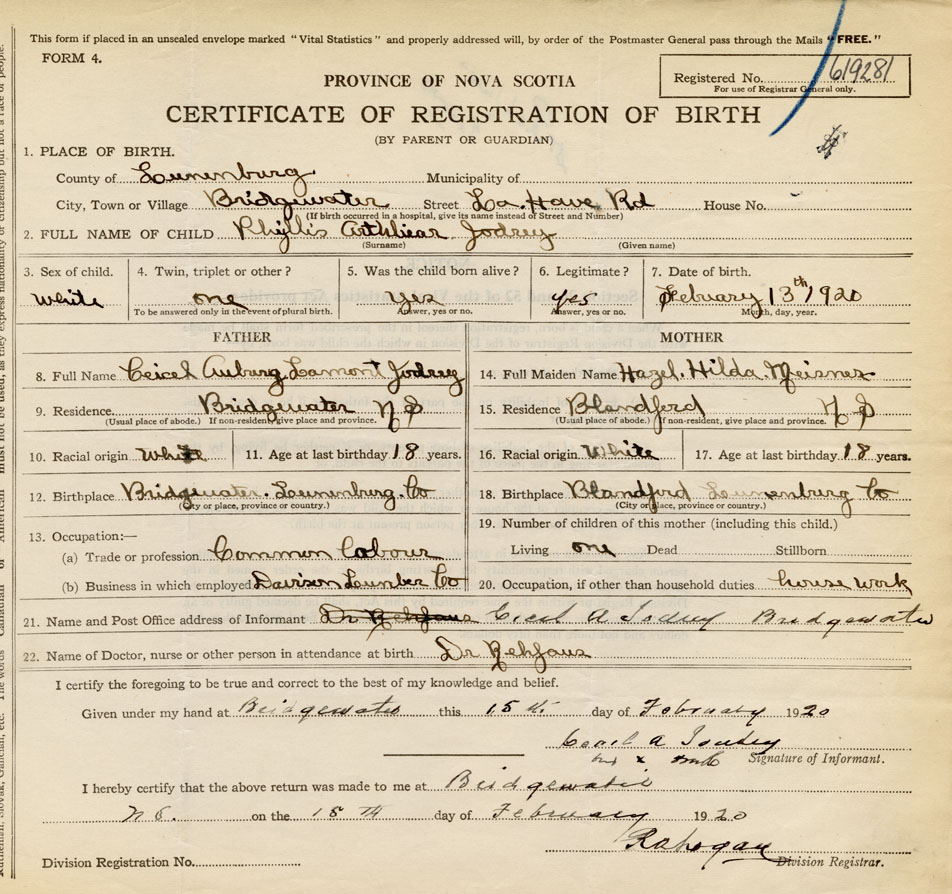 This form if placed in an unsealed envelope marked "Vital Statistics" and properly addressed will, by order of the Postmaster General pass through the Mails "FREE."
FORM 4.
Registered No. 619281
For use of Registrar General only.
PROVINCE OF NOVA SCOTIA
CERTIFICATE OF REGISTRATION OF BIRTH
(BY PARENT OR GUARDIAN)
1. PLACE OF BIRTH.
County of Lunenburg Municipality of
City, Town or Village Bridgewater Street La Have Rd House No.
(If birth occurred in a hospital, give its name instead of Street and Number)
2. FULL NAME OF CHILD Phyllis Jodrey
(Surname) (Given name)
3. Sex of child. 4. Twin, triplet or other? 5. Was the child born alive? 6. Legitimate? 7. Date of birth.
White one yes yes Febuary 13th 1920
To be answered only in the event of plural birth. Answer, yes or no. Answer, yes or no. Month, day, year.
FATHER MOTHER
8. Full Name Ceicel Auburg Lamont Jodrey 14. Full Maiden Name Hazel Hilda Meisner
9. Residence Bridgewater N S 15. Residence Blandford N S
(Usual place of abode.) If non-resident, give place and province. (Usual place of abode.) If non-resident, give place and province.
10. Racial origin White 11. Age at last birthday 18 years. 16. Racial origin White 17. Age at last birthday 18 years.
12. Birthplace Bridgewater Lunenburg Co 18. Birthplace Blandford Lunenburg Co
(City or place, province or country.) (City or place, province or country.)
13. Occupation:— 19. Number of children of this mother (including this child.)
(a) Trade or profession Common Labour Living one Dead Stillborn
(b) Business in which employed Davison Lumber Co 20. Occupation, if other than household duties house work
21. Name and Post Office address of Informant Dr Rehfaus Cecil A Jodrey Bridgewater
22. Name of Doctor, nurse or other person in attendance at birth Dr Rehfaus
I certify the foregoing to be true and correct to the best of my knowledge and belief.
Given under my hand at Bridgewater this 15th day of February 1920
Cecil A Jodrey
his x mark Signature of Informant.
I hereby certify that the above return was made to me at Bridgewater
N.S. on the 15th day of February 1920
Division Registration No. Division Registrar.